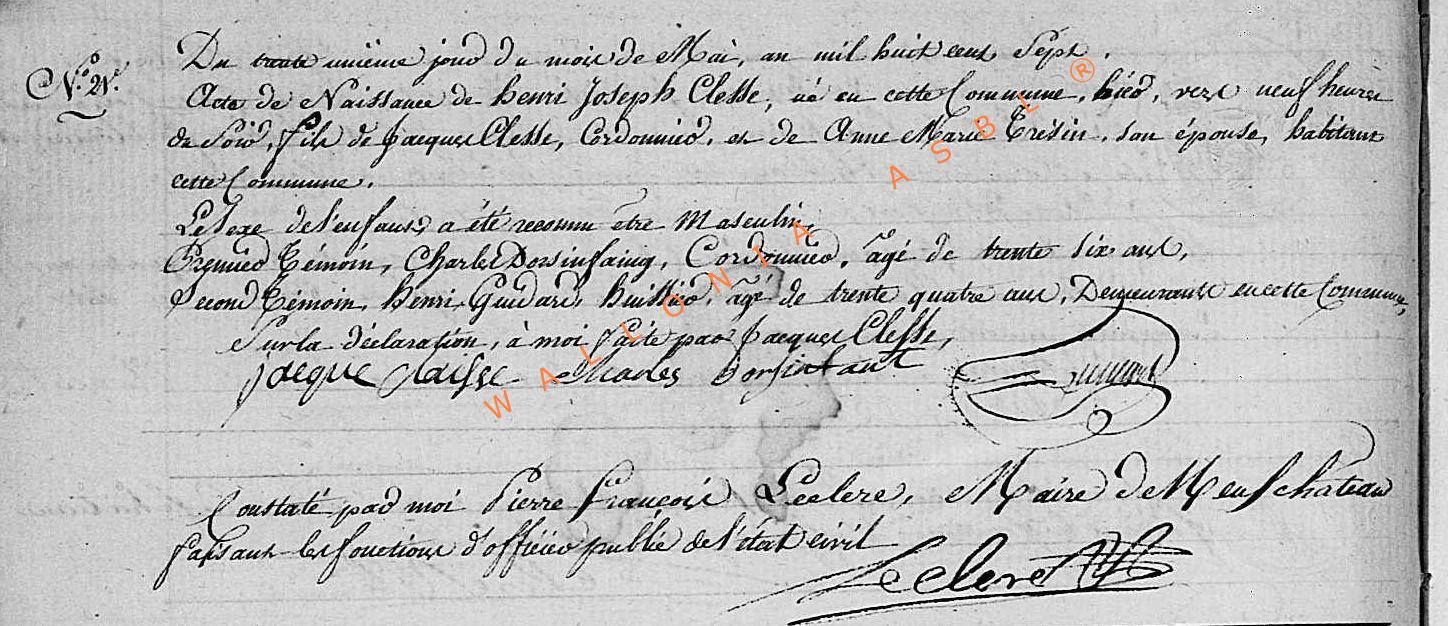 N.° 21.e
Du trente unième jour du mois de Mai, an mil huit cent Sept.
Acte de Naissance de henri Joseph Clesse, né en cette Commune, hier, vers neuf heures
du Soir, fils de Jacques Clesse, Cordonnier, et de Anne Marie Trésin, son épouse, habitans
cette Commune.
Le Sexe de l'enfant, a été reconnu être Masculin,
Premier Témoin, Charles Dorsinfaing, Cordonnier, âgé de trente six ans,
Second Témoin, henri Guidard, huissier, âgé de trente quatre ans, Demeurants en cette Commune,
Sur la déclaration, à moi faite par Jacques Clesse,
jacque Claisse Charles Dorsinfaut
Constaté par moi Pierre François Leclere, Maire de Neufchateau
faisant les fonctions d'officier public de l'état civil
Leclere
WALLONIA ASBL®